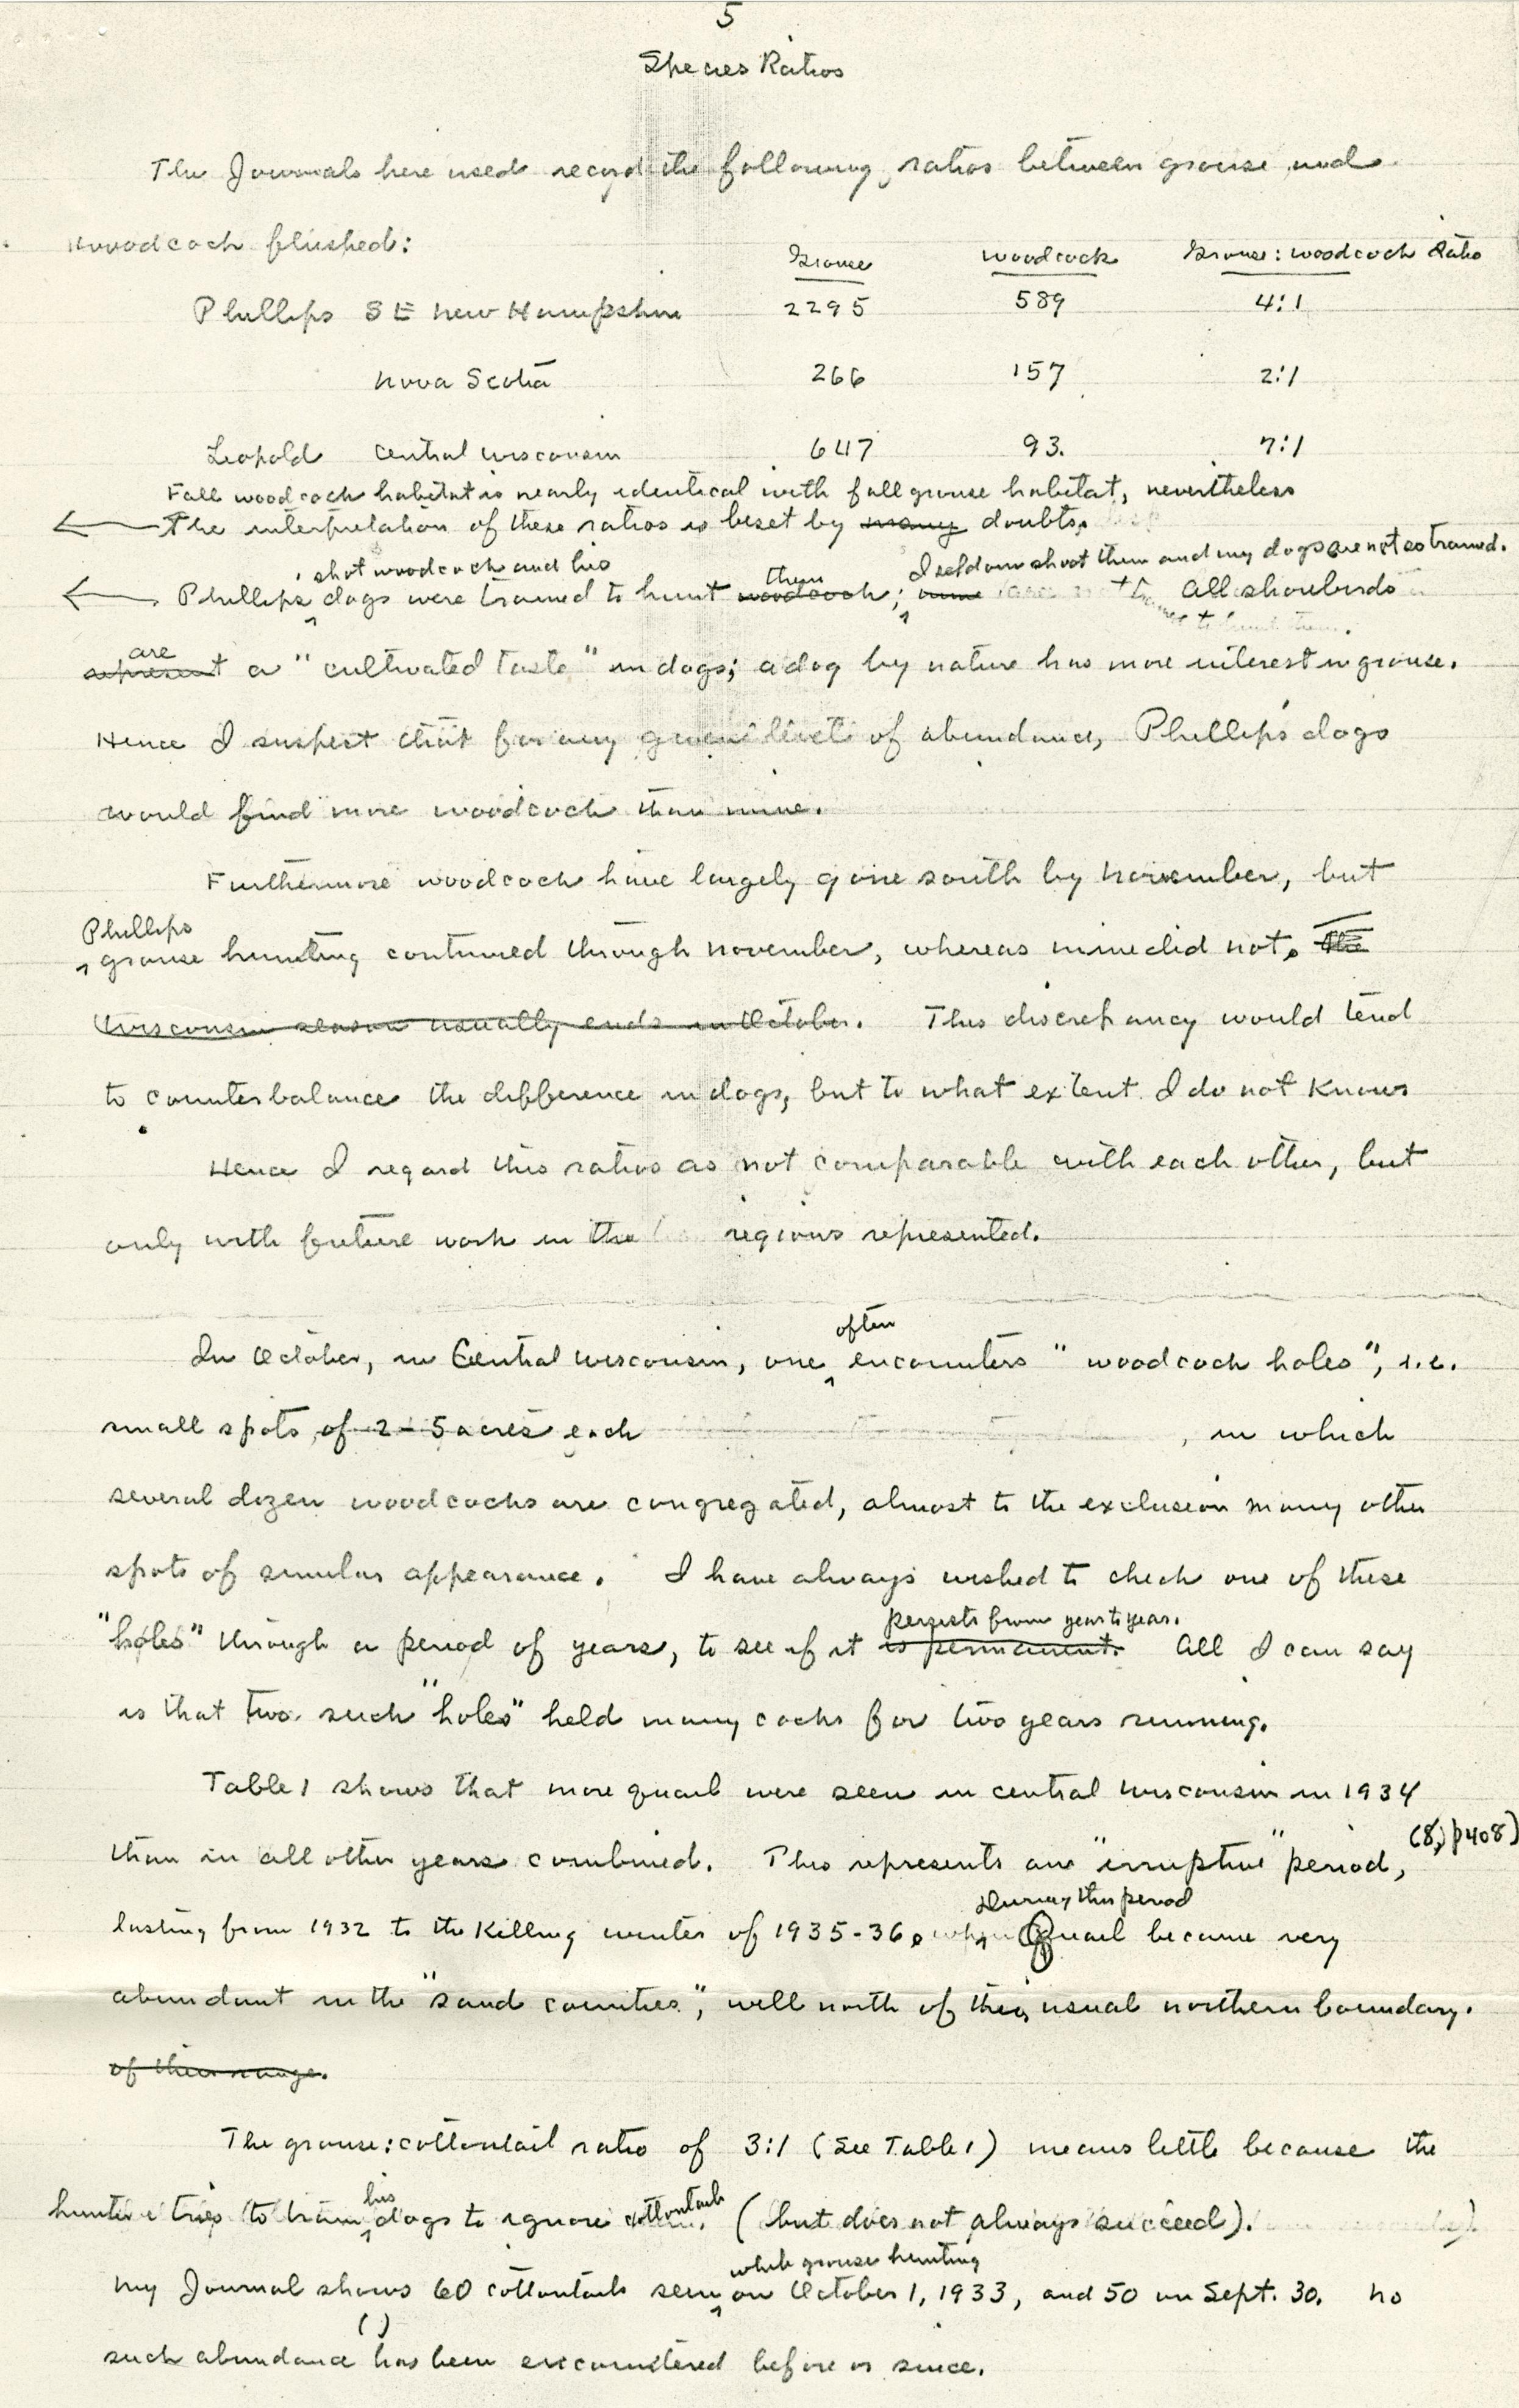 5
Species Ratios
The Journals here used record the following ratios between grouse and
woodcock flushed:
Grouse woodcock Grouse : woodcock Ratio
Phillips S E New Hampshire 2295 589 4:1
Nova Scotia 266 157 2:1
Leopold Central Wisconsin 647 93. 7:1
Fall woodcock habitat is nearly identical with fall grouse habitat, nevertheless
The interpretation of these ratios is beset by many doubts.
shot woodcock and his them I seldom shoot them and my dogs are not so trained.
Phillips dogs were trained to hunt woodcock; mine All shorebirds
are
represent a "cultivated taste" in dogs; a dog by nature has more interest in grouse.
Hence I suspect that for any given level of abundance, Phillips' dogs
would find more woodcock than mine.
Furthermore woodcock have largely gone south by November, but
Phillips
grouse hunting continued through November, whereas mine did not. The
Wisconsin season usually ends in October. This discrepancy would tend
to counterbalance the difference in dogs, but to what extent I do not know
Hence I regard this ratios as not comparable with each other, but
only with future work in the regions represented.
often
In October, in Central Wisconsin, one encounters "woodcock holes", i.e.
small spots of 2-5 acres each , in which
several dozen woodcocks are congregated, almost to the exclusion many other
spots of similar appearance. I have always wished to check one of these
persists from year to year.
"holes" through a period of years, to see if it is permanent. All I can say
is that two such "holes" held many cocks for two years running.
Table 1 shows that more quail were seen in central Wisconsin in 1934
than in all other years combined. This represents an "irruptive" period, (8, p408)
During this period
lasting from 1932 to the killing winter of 1935-36. Quail became very
abundant in the "sand counties", well north of their usual northern boundary.
of their range.
The grouse:cottontail ratio of 3:1 (See Table 1) means little because the
his cottontails
hunter tries to train dogs to ignore (but does not always succeed).
while grouse hunting
My Journal shows 60 cottontails seen on October 1, 1933, and 50 on Sept. 30. No
( )
such abundance has been encountered before or since.